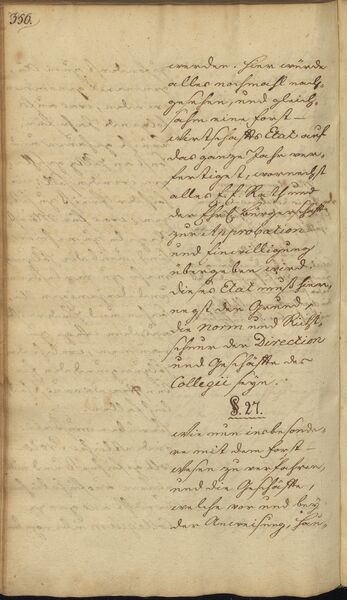 356.
werden. Hier würde
alles nochmahl nach-
gesehen, und gleich-
sahm eine Forst-
wirtschafts Etat auf
das ganze Jahr ver-
fertiget, wornächst
alles E. E. Rath und
der Ehrl. Bürgerschafft
zur Approbation
und Einwilligung
übergeben wird.
dieses Etat muß hier-
negst der Grund,
die Norm und Richt-
schnur der Direction
und Geschäffte des
Collegii seyn.
§. 27.
Wie nun insbesonde-
re mit dem Forst-
wesen zu verfahren,
und die Geschäffte,
welche vor und bey
der Anweisung, Hau-